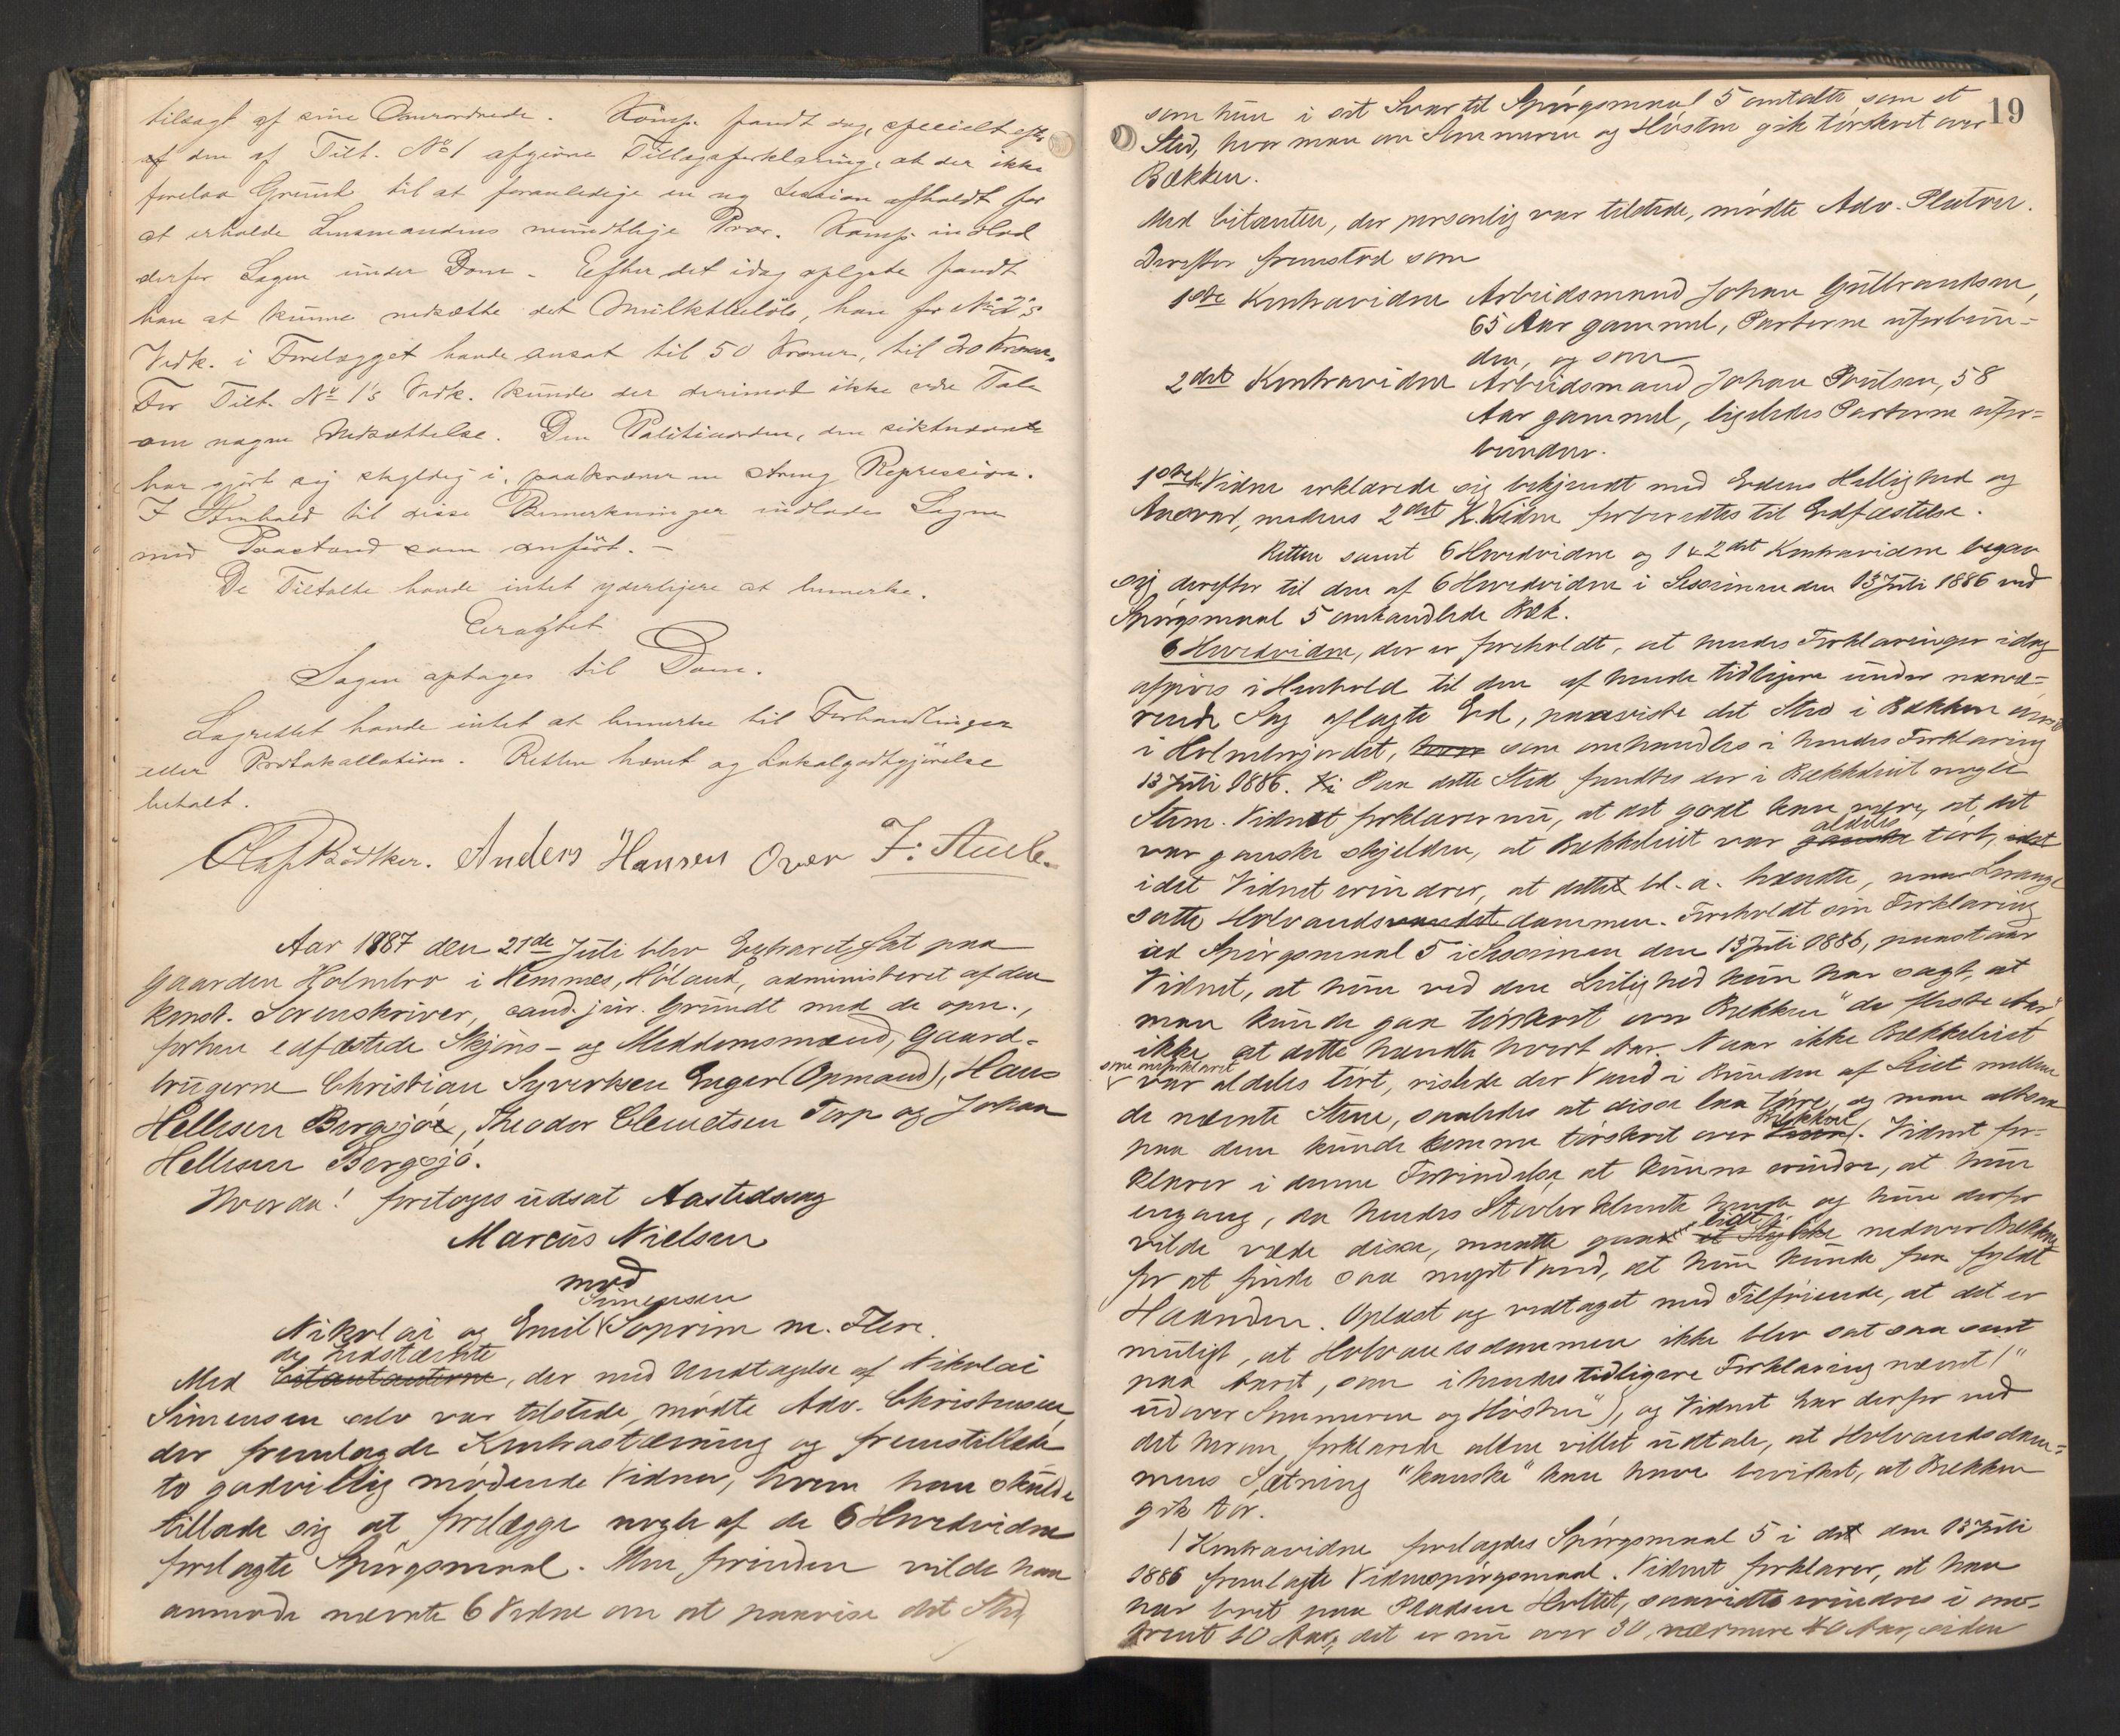 tilsagt af sine Overordnede. Komp. fandt dog, specielt efter
af den af Tilt. No 1 afgivne Tillægsforklaring, at der ikke
forelaa Grund til at foranledige en ny Session afholdt for
at erholde Lensmandens mundtlige Prov. Komp. indlod
derfor Sagen under Dom. Efter det idag oplyste fandt
han at kunne nedsætte det Mulktbeløb, han for No 2's
Vedk. i Forelægget havde ansat til 50 Kroner, til 20 Kroner.
For Tilt. No 1's Vedk. kunde der derimod ikke være Tale
om nogen Nedsættelse. Den Politiuorden, den sidstnævnte
har gjort sig skyldig i, paakræver en streng Repression.
I Henhold til disse Bemerkninger indlades Sagen
med Paastand som anført. –
De Tiltalte havde intet yderligere at bemerke.
Eragtet
Sagen optages til Dom.
Lagrettet havde intet at bemerke til Forhandlingen
eller Protokollation. Retten hævet og Lokalgodtgjørelse
betalt.
Olaf Bødtker. Anders Hansen Over F. Aueb.
Aar 1887 den 21de Juli blev Extraret sat paa
Gaarden Holmbro i Hemnes, Høland, administreret af den
konst. Sorenskriver, cand. jur. Grundt med de opn.,
forhen edfæstede Skjøns- og Meddomsmænd, Gaard-
brugerne Christian Syvertsen Enger (Opmand), Hans
Hellesen Bergsjø, Theodor Clemetsen Torp og Johan
Hellesen Bergsjø.
Hvorda! foretoges udsat Aastedssag
Marcus Nielsen
mod
Simensen
Nikolai og Emil Soprim m. Flere.
de Indstævnte
Med Citantanterne, der med Undtagelse af Nikolai
Simensen selv var tilstede, mødte Adv. Christensen,
der fremlagde Kontrastævning og fremstillede
to godvillig mødende Vidner, hvem han skulde
tillade sig at forelægge nogle af de 6 Hovedvidne
forelagte Spørgsmaal. Men forinden vilde han
anmode nævnte 6 Vidne om at paavise det Sted,
19
som hun i sit Svar til Spørgsmaal 5 omtalte som et
Sted, hvor man om Sommeren og Høsten gik tørskoet over
Bækken.
Med Citanten, der personlig var tilstede, mødte Adv. Platou.
Derefter fremstod som
1ste Kontravidne Arbeidsmand Johan Gulbrandsen,
65 Aar gammel, Parterne uforbun-
den, og som
2det Kontravidne Arbeidsmand Johan Poulsen, 58
Aar gammel, ligeledes Parterne ufor-
bunden.
1ste K. Vidne erklærede sig bekjendt med Edens Hellighed og
Ansvar, medens 2det K. Vidne forberedtes til Edfæstelse.
Retten samt 6 Hovedvidne og 1 & 2det Kontravidne begav
sig derefter til den af 6 Hovedvidne i Sessionen den 13 Juli 1886 ved
Spørgsmaal 5 omhandlede Bæk.
6 Hovedvidne, der er foreholdt, at hendes Forklaringer idag
afgives i Henhold til den af hende tidligere under nærvæ-
rende Sag aflagte Ed, paaviste det Sted i Bækken
i Holmbrojordet, hvor som omhandles i hendes Forklaring
13 Juli 1886. Paa dette Sted fandtes der i Bækkeleiet nogle
Stene. Vidnet forklarer nu, at det godt kan være, at det
var ganske skjelden, at Bækkeleiet var ganske aldeles tørt, idet
idet Vidnet erindrer, at dette bl. a. hændte, naar
satte Holvandsvandet dammen. Foreholdt sin Forklaring
ad Spørgsmaal 5 i Sessionen den 13 Juli 1886, paastaar
Vidnet, at hun ved den Leilighed kun har sagt, at
man kunde gaa tørskoet over Bækken "de fleste Aar",
ikke at dette hændte hvert Aar. Naar ikke Bækkeleiet
som anforklaret
var aldeles tørt, rislede der Vand i Bunden af Leiet mellem
de nævnte Stene, saaledes at disse laa tørre, og man altsaa
paa dem kunde komme tørskoet over Bækken. Vidnet for-
klarer i denne Forbindelse at kunne erindre, at hun
engang, da hendes Støvler klemte hende og hun derfor
vilde væde disse, maatte gaa lidt et Stykke nedover Bækken
for at finde saa meget Vand, at hun kunde faa fyldt
Haanden. Oplæst og vedtaget med Tilføiende, at det er
muligt, at Holvandsdammen ikke blev sat saa sent
paa Aaret, som i hendes tidligere Forklaring nævnt ("
udover Sommeren og Høsten"), og Vidnet har derfor ved
det hvem forklarede alene villet udtale, at Holvandsdam-
mens Sætning "kanske" kan have bevirket, at Bækken
gik tør.
1 Kontravidne forelagdes Spørgsmaal 5 i det den 13 Juli
1886 fremlagte Vidnespørgsmaal. Vidnet forklarer, at han
har boet paa Pladsen Holtet, saavidt erindres i om-
trent 10 Aar; det er nu over 30, nærmere 40 Aar, siden